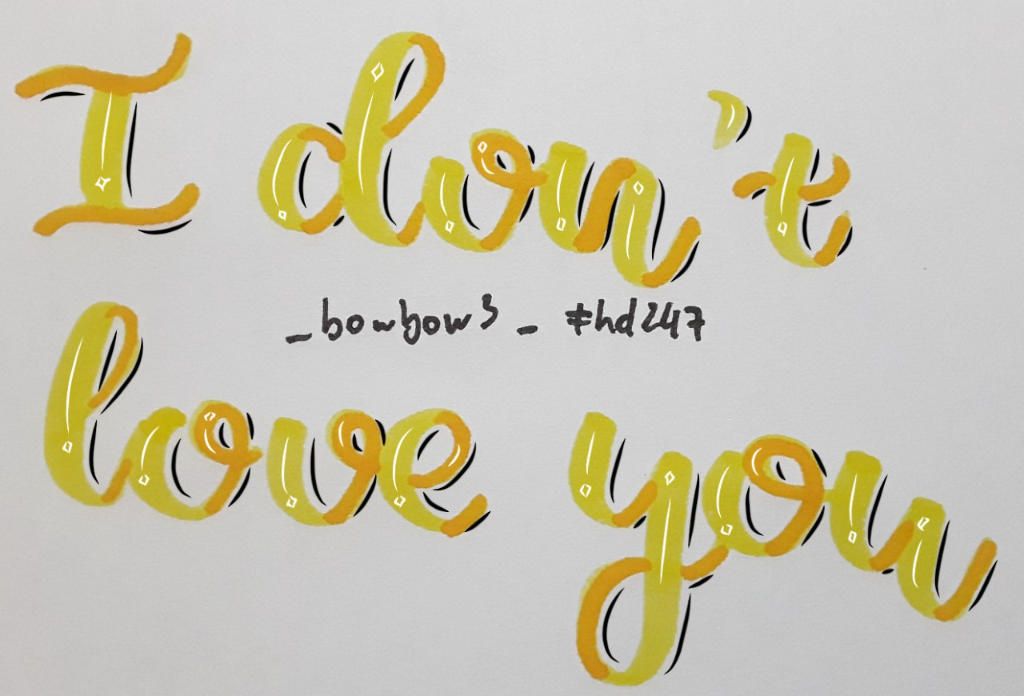 I don't
_bowbow3_ #hd247
love you